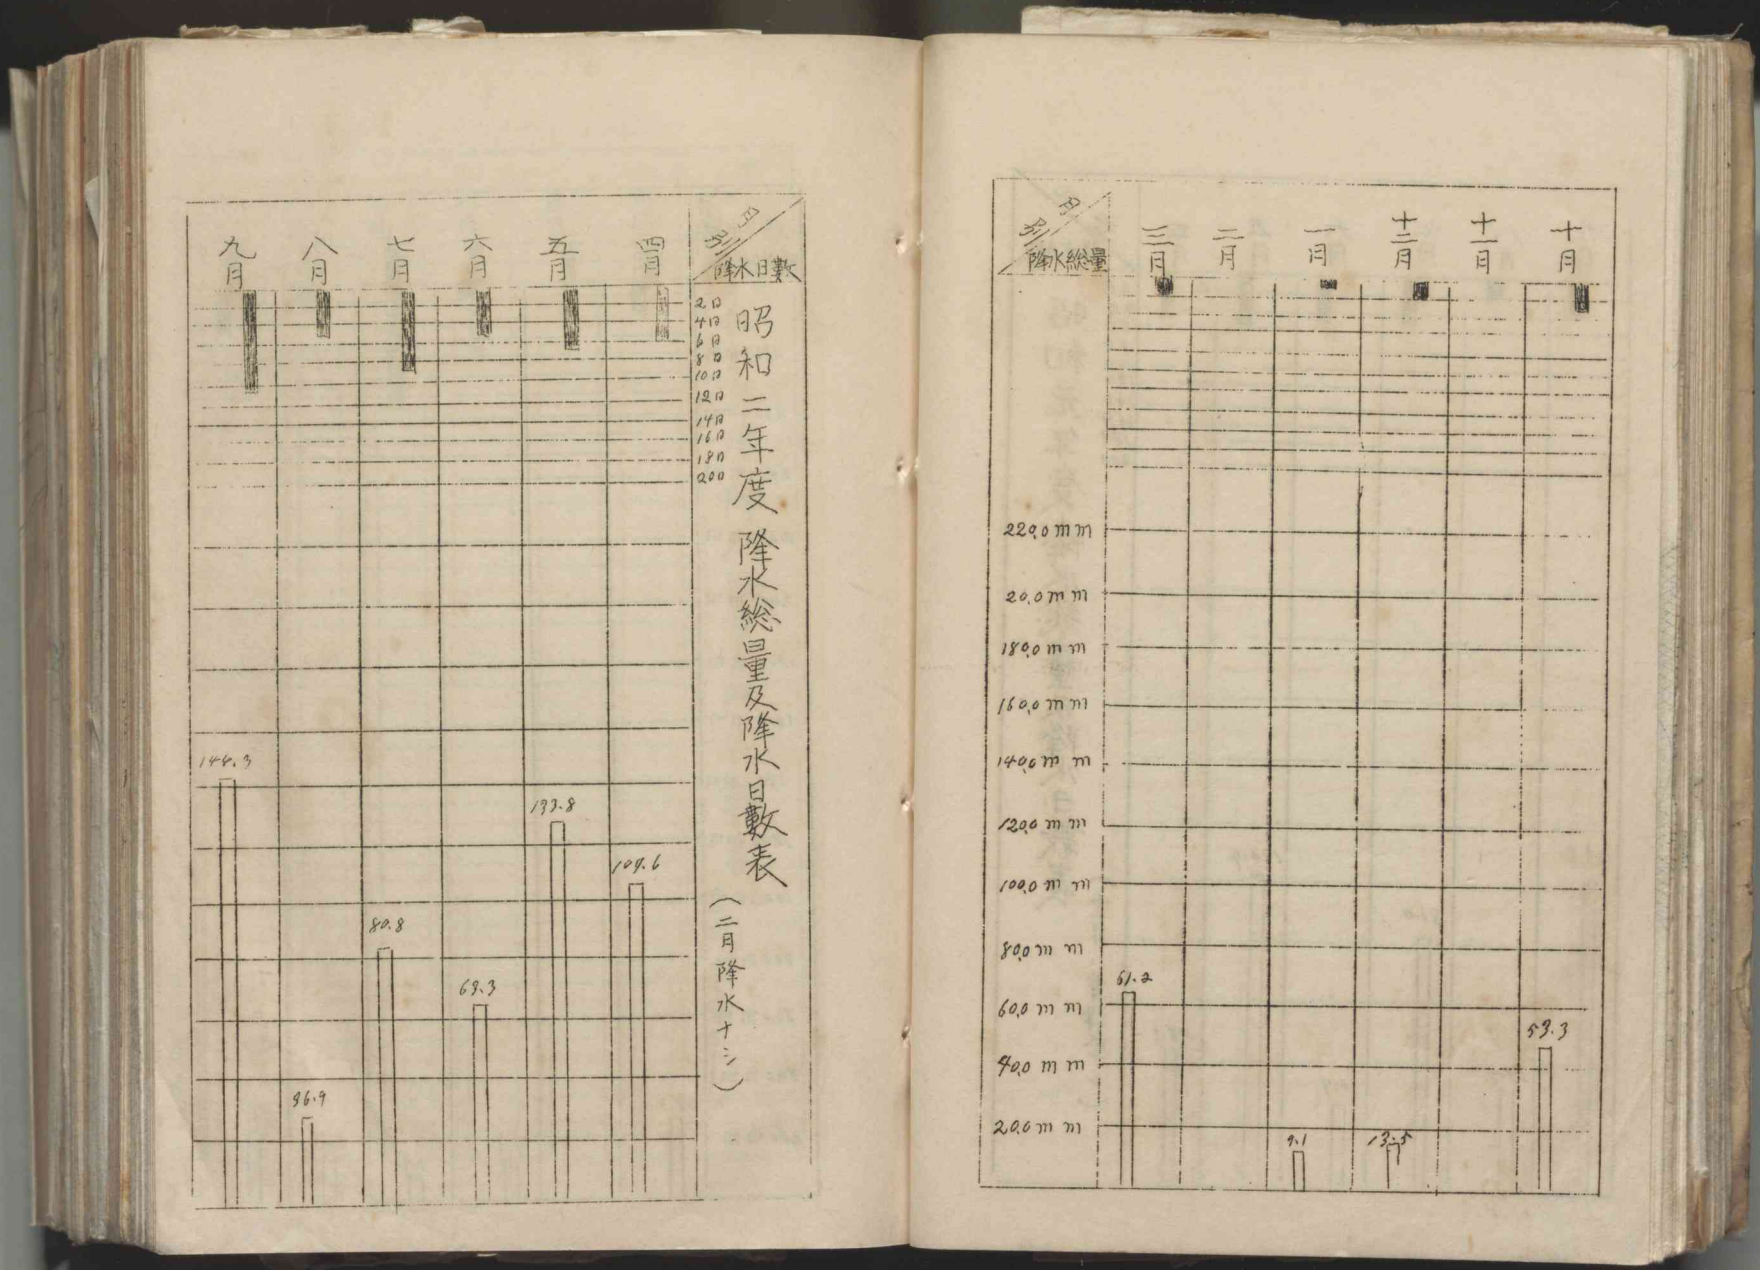 昭和二年度 降水総量及降水日數表
(二月降水ナシ)
月別
降水日數
四月
五月
六月
七月
八月
九月
2日
4日
6日
8日
10日
12日
14日
16日
18日
20日
109.6
133.8
69.3
80.8
36.9
144.3
十月
十一月
十二月
一月
二月
三月
月別
降水総量
220.0mm
20.0mm
180.0mm
160.0mm
140.0mm
120.0mm
100.0mm
80.0mm
60.0mm
40.0mm
20.0mm
53.3
13.5
9.1
61.2